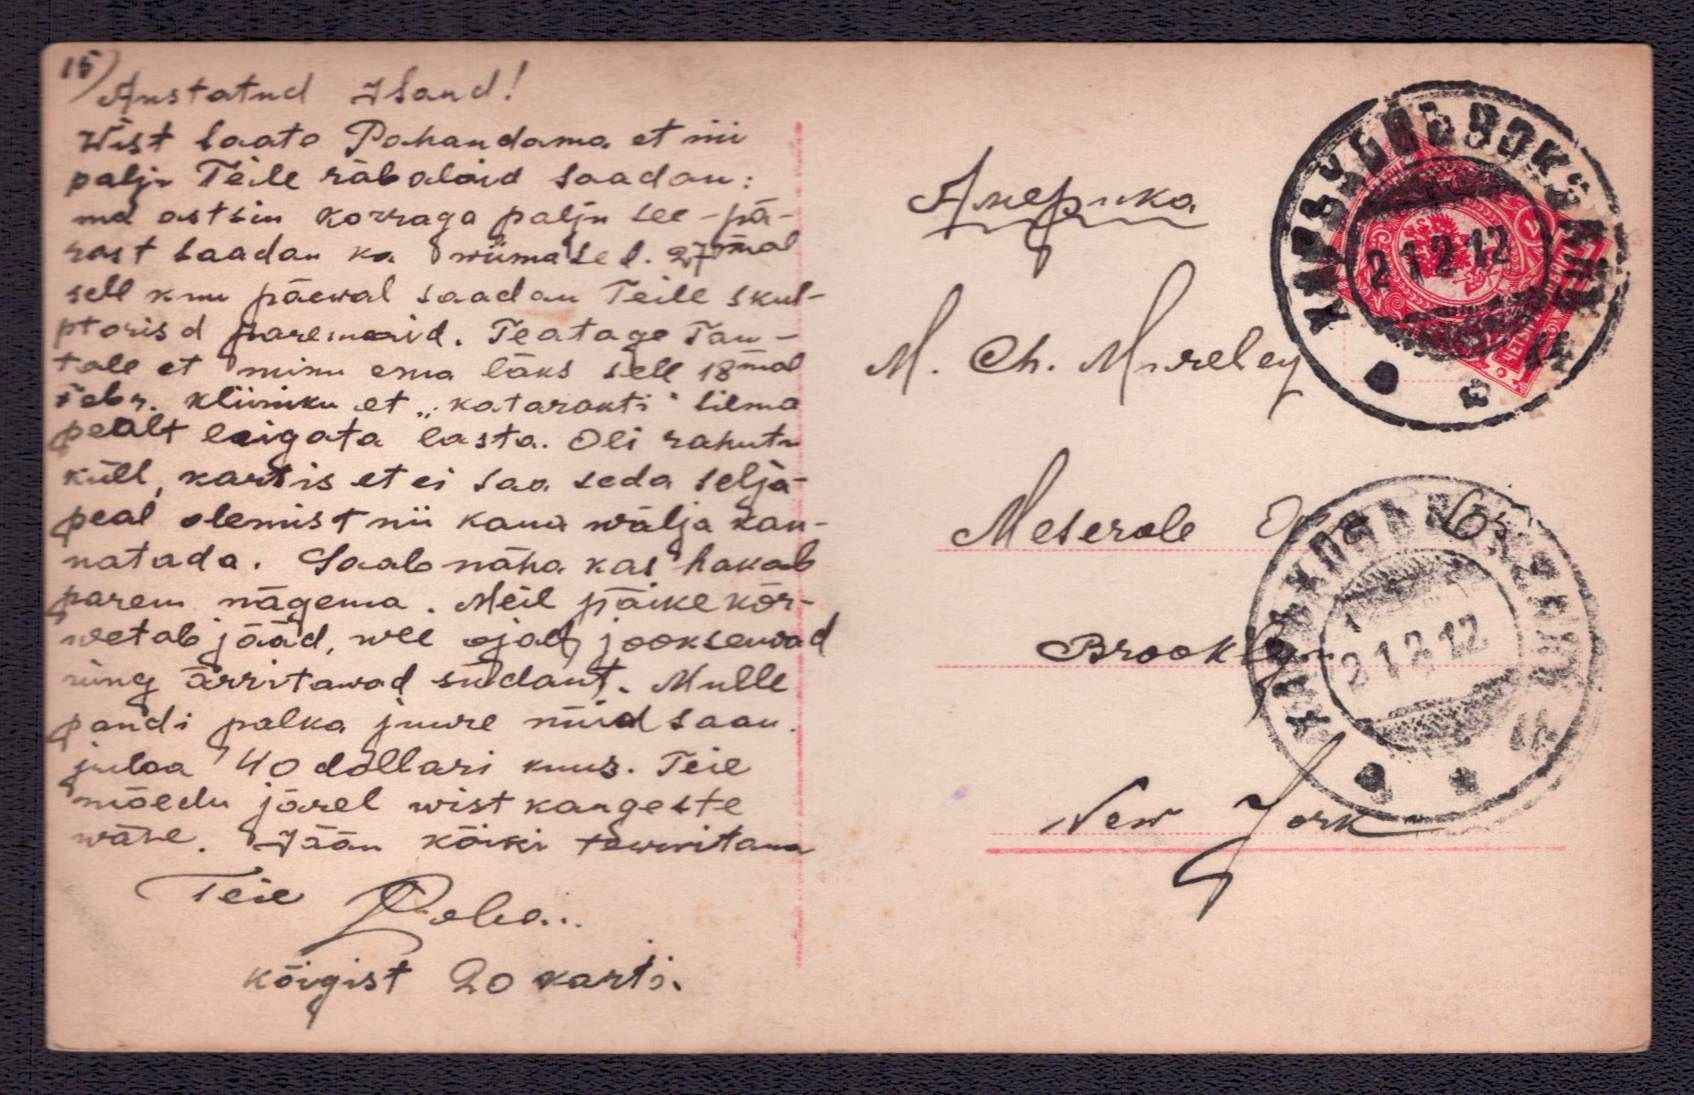 15)
Austatud Isand!
Wist saate Pahandama et nii
palju Teile räbalaid saadan:
ma ostsin korraga palju see-pä-
rast saadan ka wiimased. 27mal
sell kuu päewal saadan Teile skul-
ptorisd paremaid. Teatage Tan-
tale et minu ema läks sell 18mal
Febr. kliiniku et „katarakti“ silma
pealt leigata lasta. Oli rahutu
küll, kartis et ei saa seda selja-
peal olemist nii kaua wälja kan-
natada. Saab näha kas hakab
parem nägema. Meil päike kõr-
wetab jääd, wee ojad jooksewad
ning ärritawad südant. Mulle
pandi palka juure nüid saan
juba 40 dollari kuus. Teie
mõedu järel wist kangeste
wähe. Jään kõiki terwitama
Teie
kõigist 20 karti.
Америка
M. Ch. Mureley
Meserole
Brooklyn
New York
21 2 12
21 2 12